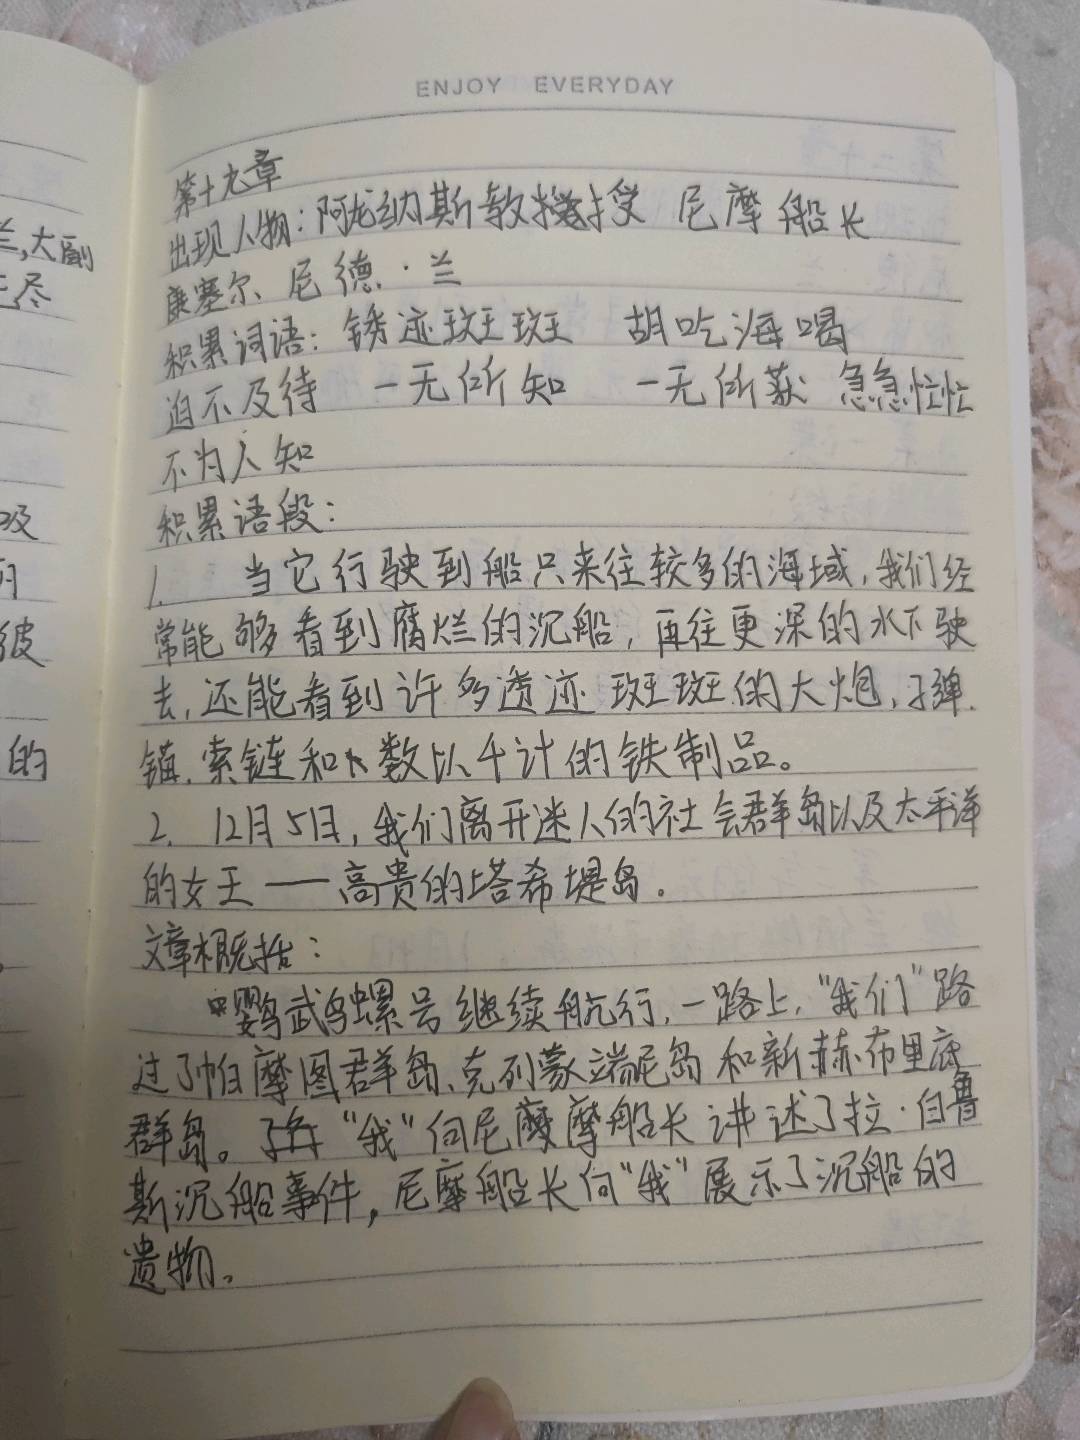 ENJOY EVERYDAY
第十九章
出现人物：阿龙纳斯教授 尼摩船长
康塞尔、尼德·兰
积累词语：锈迹斑斑 胡吃海喝
迫不及待 一无所知 一无所获 急急忙忙
不为人知
积累语段：
1. 当它行驶到船只来往较多的海域，我们经
常能够看到腐烂的沉船，再往更深的水下驶
去，还能看到许多透迹斑斑的大炮、子弹、
锚、索链和数以千计的铁制品。
2. 12月5日，我们离开迷人的社会群岛以及太平洋
的女王——高贵的塔希堤岛.
文章概括：
"鹦武鸟螺号继续航行，一路上，"我们"路
过了帕摩图群岛、克列蒙端尼岛和新赫布里底
群岛。"我"向尼摩船长讲述了拉·白鲁
斯沉船事件，尼摩船长向"我"展示了沉船的
遗物。
兰,大副
尽
及
彼
的